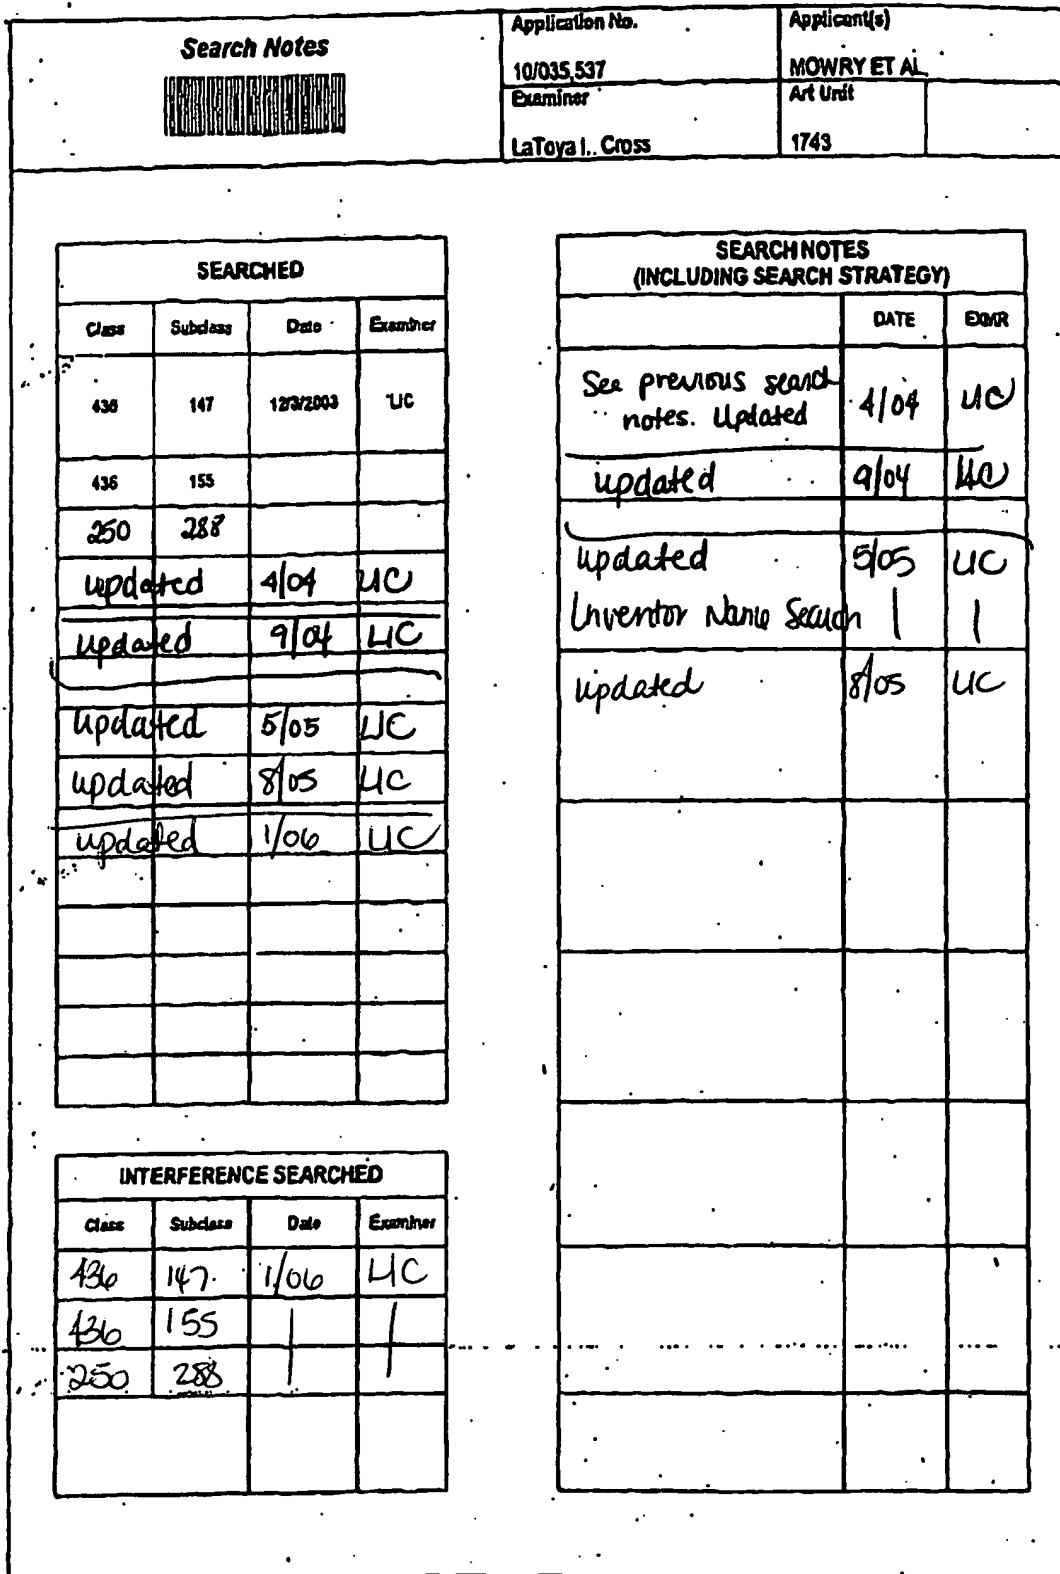 Search Notes
Application No.
Applicant(s)
10/035,537
MOWRY ET AL.
Examiner
Art Unit
LaToya I. Cross
1743
SEARCHED
Class Subclass Date Examiner
436 147 12/3/2003 LIC
436 155
250 288
updated 4/04 LIC
updated 9/04 LIC
updated 5/05 LIC
updated 8/05 LIC
updated 1/06 LIC
INTERFERENCE SEARCHED
Class Subclass Date Examiner
436 147 1/06 LIC
436 155
250 288
SEARCH NOTES
(INCLUDING SEARCH STRATEGY)
DATE EXMR
See previous search
notes. Updated 4/04 LIC
updated 9/04 LIC
updated 5/05 LIC
Inventor Name Search
updated 8/05 LIC